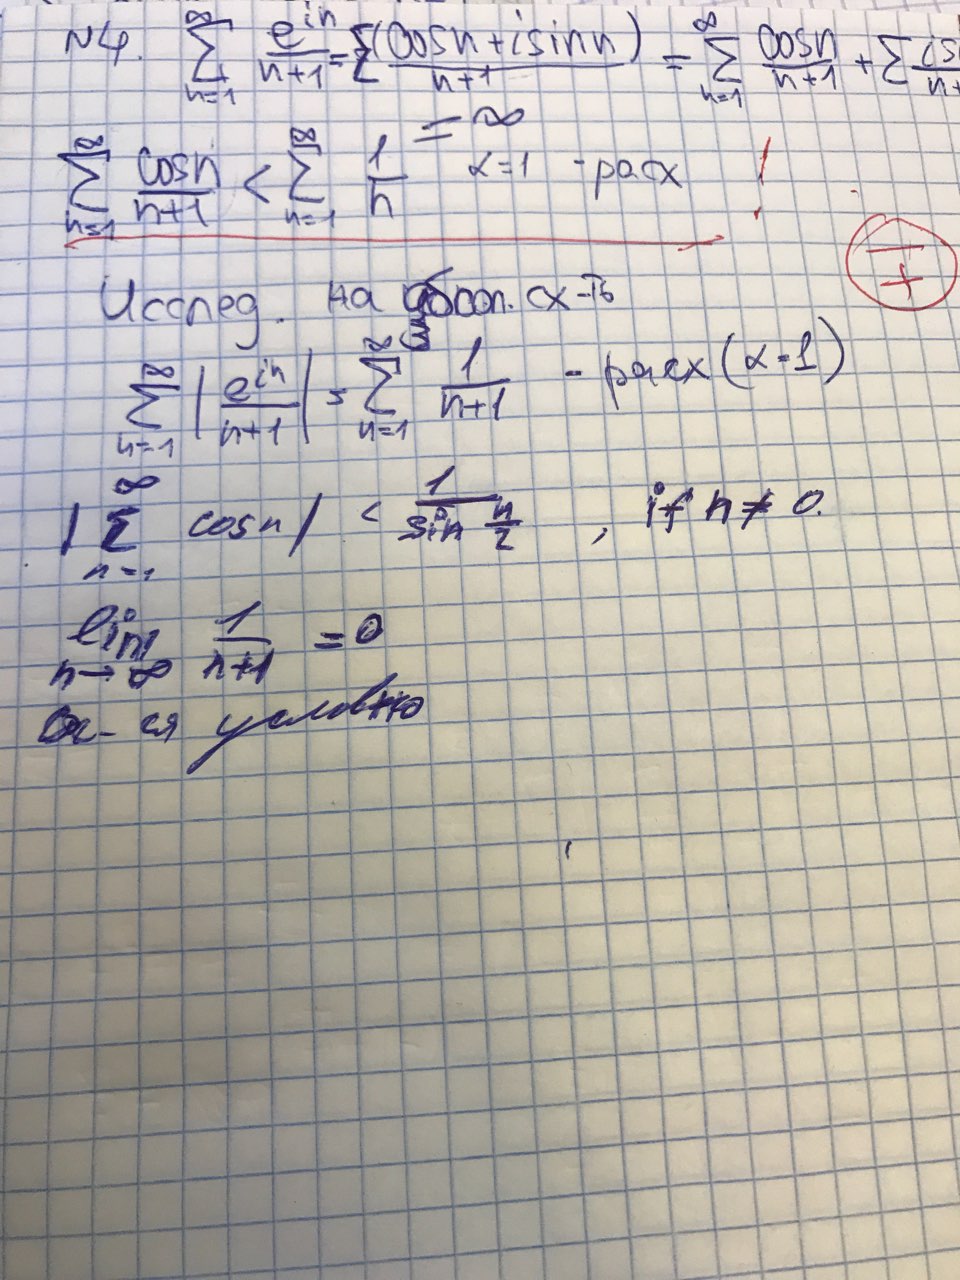 N4. ∞∑n=1 e^{in}/(n+1) = ∑ (cosn + i sinn)/(n+1) = ∞∑n=1 cosn/(n+1) + ∑ i
= ∞
∞∑n=1 cosn/(n+1) < ∞∑n=1 1/n α=1 - расх !
∓
Исслед. на абсол. сх-ть
∞∑n=1 |e^{in}/(n+1)| = ∞∑n=1 1/(n+1) - расх (α=1)
|∞∑n=1 cosn| < 1/(sin n/2), if n ≠ 0.
lim n→∞ 1/(n+1) = 0
Сх-ся условно